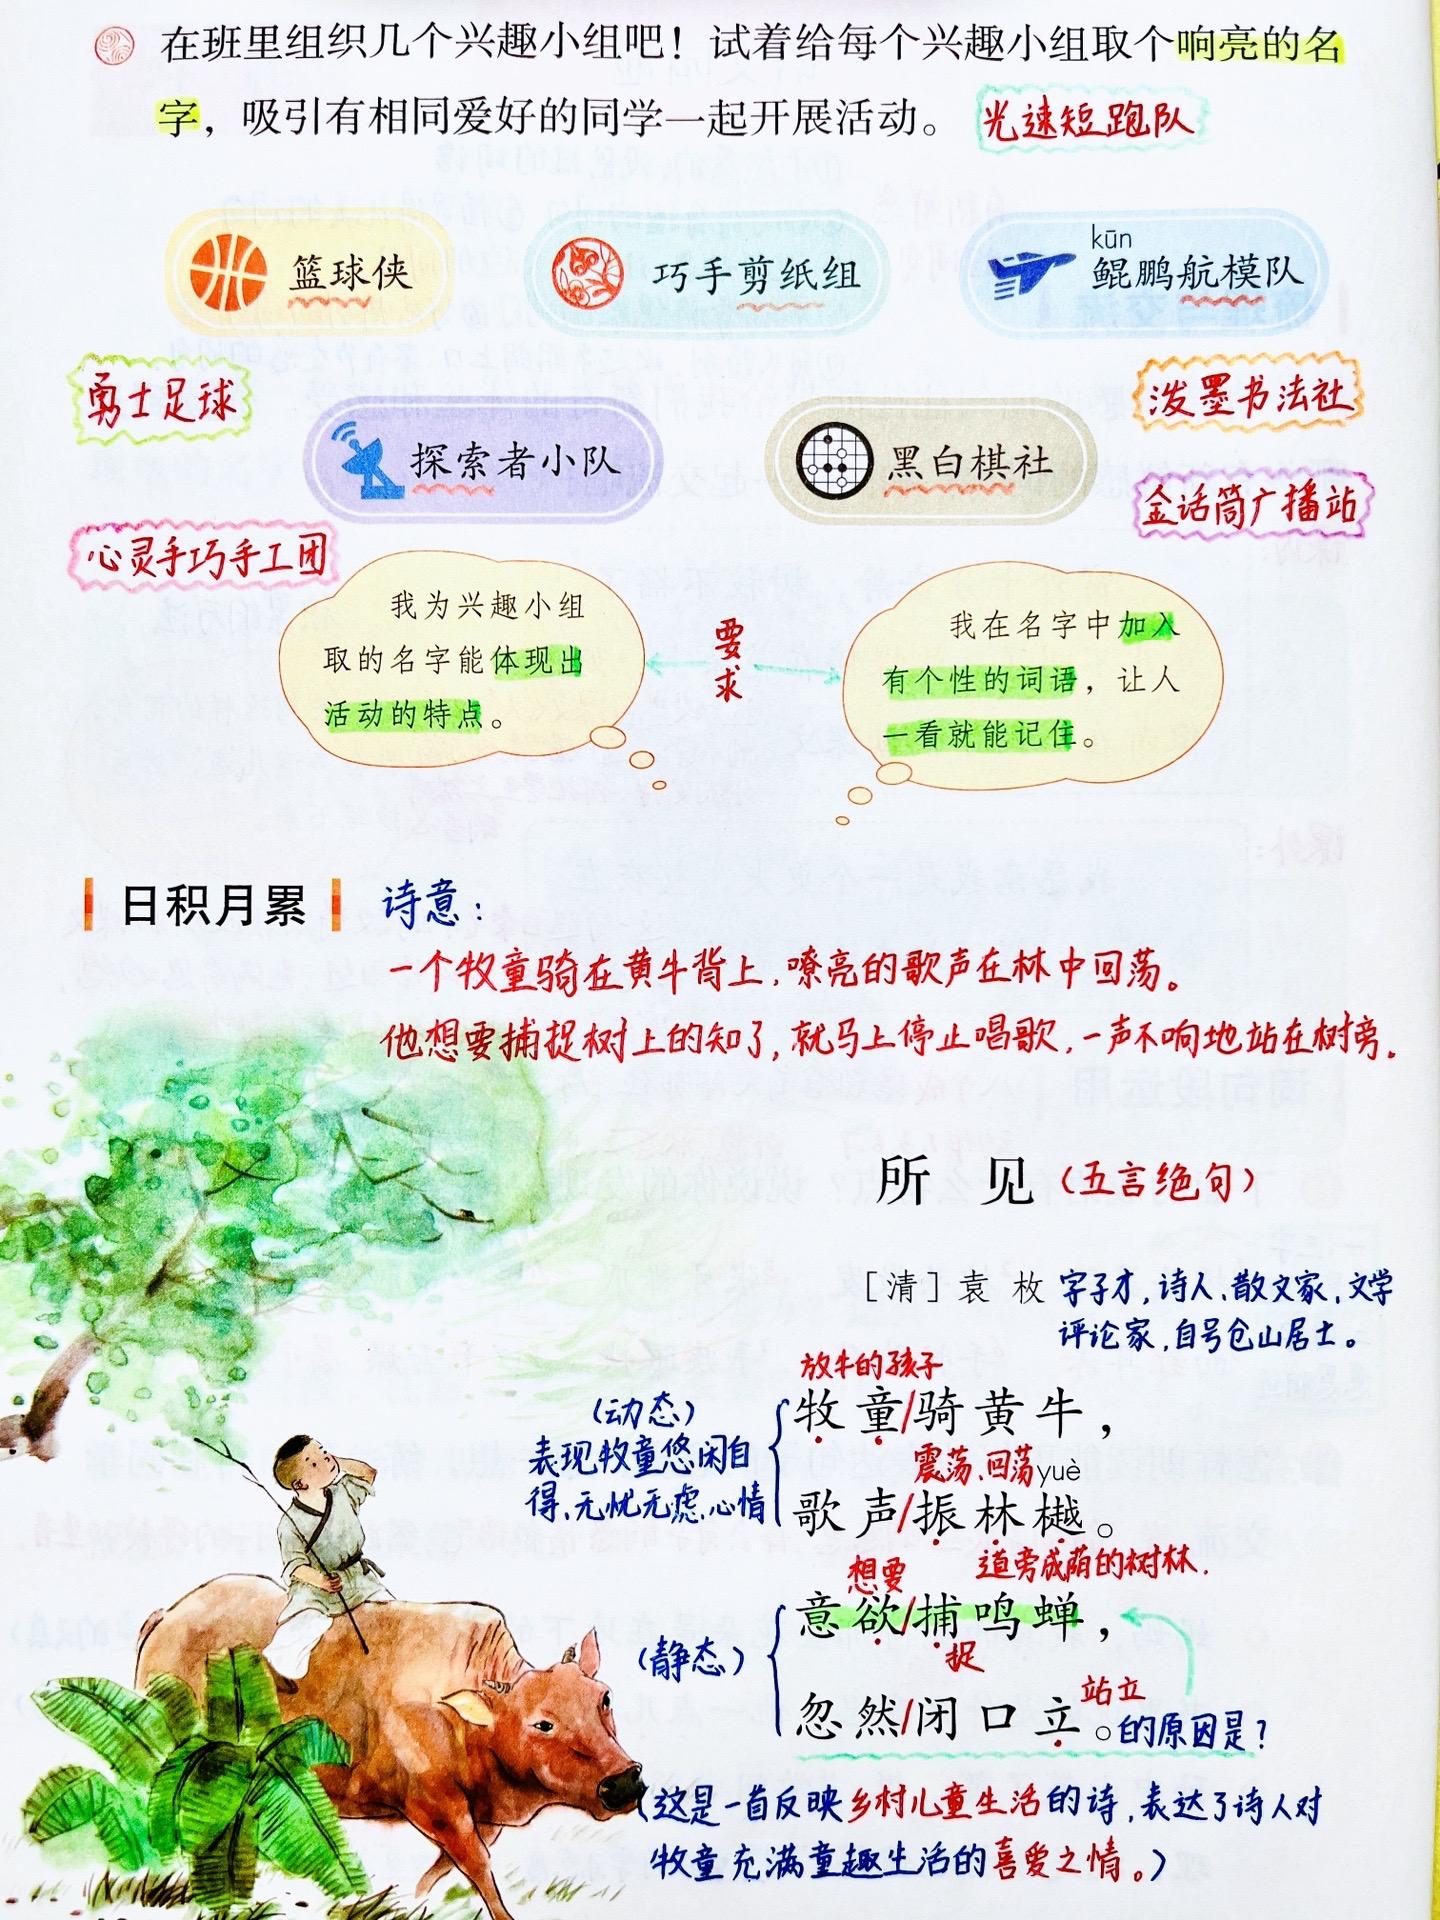 在班里组织几个兴趣小组吧！试着给每个兴趣小组取个响亮的名
字，吸引有相同爱好的同学一起开展活动。 光速短跑队
篮球侠
巧手剪纸组
kūn
鲲鹏航模队
勇士足球
泼墨书法社
探索者小队
黑白棋社
金话筒广播站
心灵手巧手工团
我为兴趣小组
取的名字能体现出
活动的特点。
要求
我在名字中加入
有个性的词语，让人
一看就能记住。
日积月累 诗意：
一个牧童骑在黄牛背上，嘹亮的歌声在林中回荡。
他想要捕捉树上的知了，就马上停止唱歌，一声不响地站在树旁.
所 见（五言绝句）
［清］袁 枚 字子才，诗人、散文家、文学
评论家，自号仓山居士。
放牛的孩子
牧童/骑黄牛，
（动态）
表现牧童悠闲自
得、无忧无虑、心情
震荡、回荡 yuè
歌声/振林樾。
想要 道旁成荫的树林.
意欲/捕鸣蝉，
（静态）
捉
站立
忽然/闭口立。的原因是？
（这是一首反映乡村儿童生活的诗，表达了诗人对
牧童充满童趣生活的喜爱之情。）